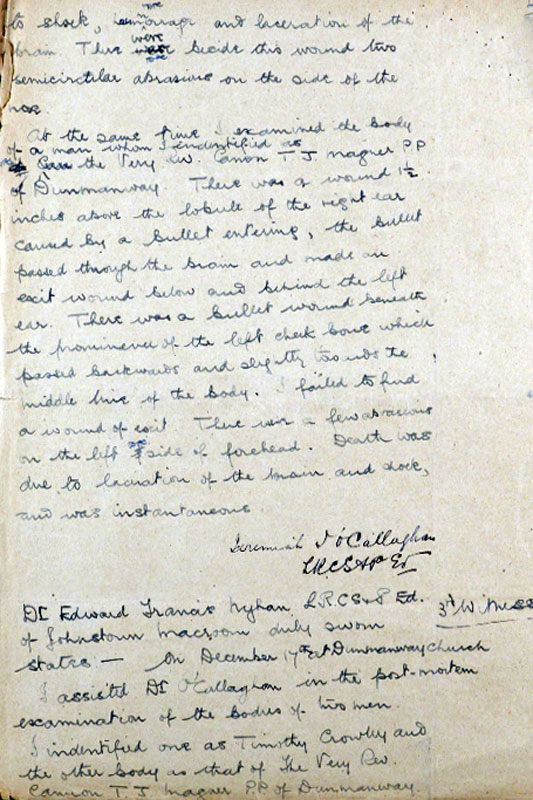 to shock, hemourage and laceration of the
brain. There were beside this wound two
semicircular abrasions on the side of the
nose.
At the same time I examined the body
of a man whom I indentified as
the Very Rev. Canon T J Magner P.P
of Dunmanway. There was a wound 1½
inches above the lobule of the right ear
caused by a bullet entering, the bullet
passed through the brain and made an
exit wound below and behind the left
ear. There was a bullet wound beneath
the prominence of the left cheek bone which
passed backwards and slightly towards the
middle line of the body. I failed to find
a wound of exit There were a few abrasions
on the left side of forehead. Death was
due to laceration of the brain and shock,
and was instantaneous.
Jeremiah J O'Callaghan
L.R.C.S & P Ed
Dr Edward Francis Nyhan L.R.C.S & P Ed.
3rd Witness
of Johnstown Macroom duly sworn
states — On December 17th at Dunmanway church
I assisted Dr O'Callaghan in the post-mortem
examination of the bodies of two men.
I indentified one as Timothy Crowley and
the other body as that of The Very Rev.
Cannon T. J. Magner P.P of Dunmanway.